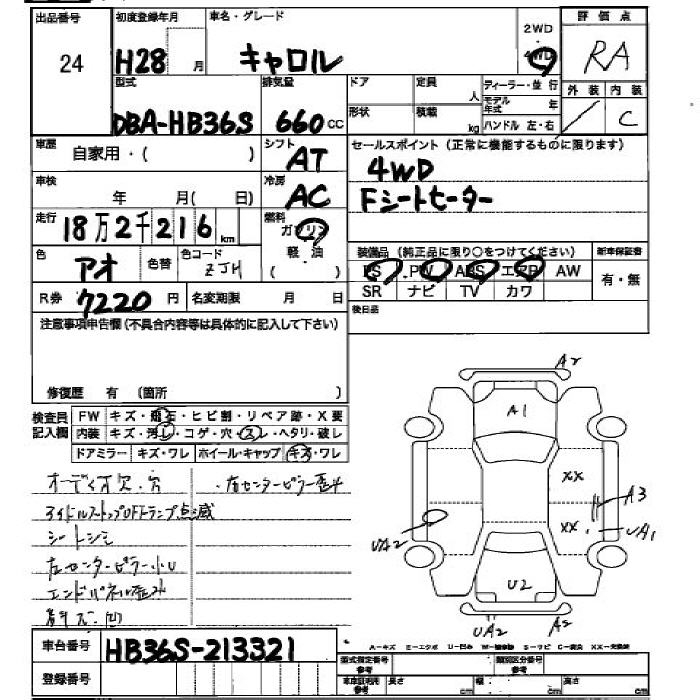 出品番号 初度登録年月 車名・グレード 2WD 評価点
24 H28 月 キャロル 4WD RA
型式 排気量 ドア 定員 人 ディーラー・並行 外装 内装
DBA-HB36S 660 cc 形状 積載 kg モデル年式 年 / C
ハンドル 左・右
車歴 自家用・( ) シフト AT セールスポイント(正常に機能するものに限ります)
4WD
車検 年 月( 日) 冷房 AC Fシートヒーター
走行 18万2千216 km 燃料 ガソリン
色 アオ 色替 色コード ZJH 軽・油 ( ) 装備品(純正品に限り○をつけてください) 新車保証書
PS PW ABS エアB AW 有・無
R券 7220 円 名変期限 月 日 SR ナビ TV カワ
注意事項申告欄(不具合内容等は具体的に記入して下さい) 後日品
修復歴 有 (箇所 )
検査員記入欄 FW キズ・飛石・ヒビ割・リペア跡・X要
内装 キズ・汚レ・コゲ・穴・スレ・ヘタリ・破レ
ドアミラー キズ・ワレ ホイール・キャップ キズ・ワレ
オーディオ欠.穴 ・左センターピラー歪み
アイドルストップOFFランプ点滅
シートシミ
左センターピラー小U
エンドパネル歪み
A2
A1
XX
A3
XX
UA1
UA2
U2
UA2 A2
A-キズ E-エクボ U-凹み
車台番号 HB36S-213321
登録番号 型式指定番号 参考 類別区分番号 参考
車車証明用 参考 長さ cm 幅 cm 高さ cm